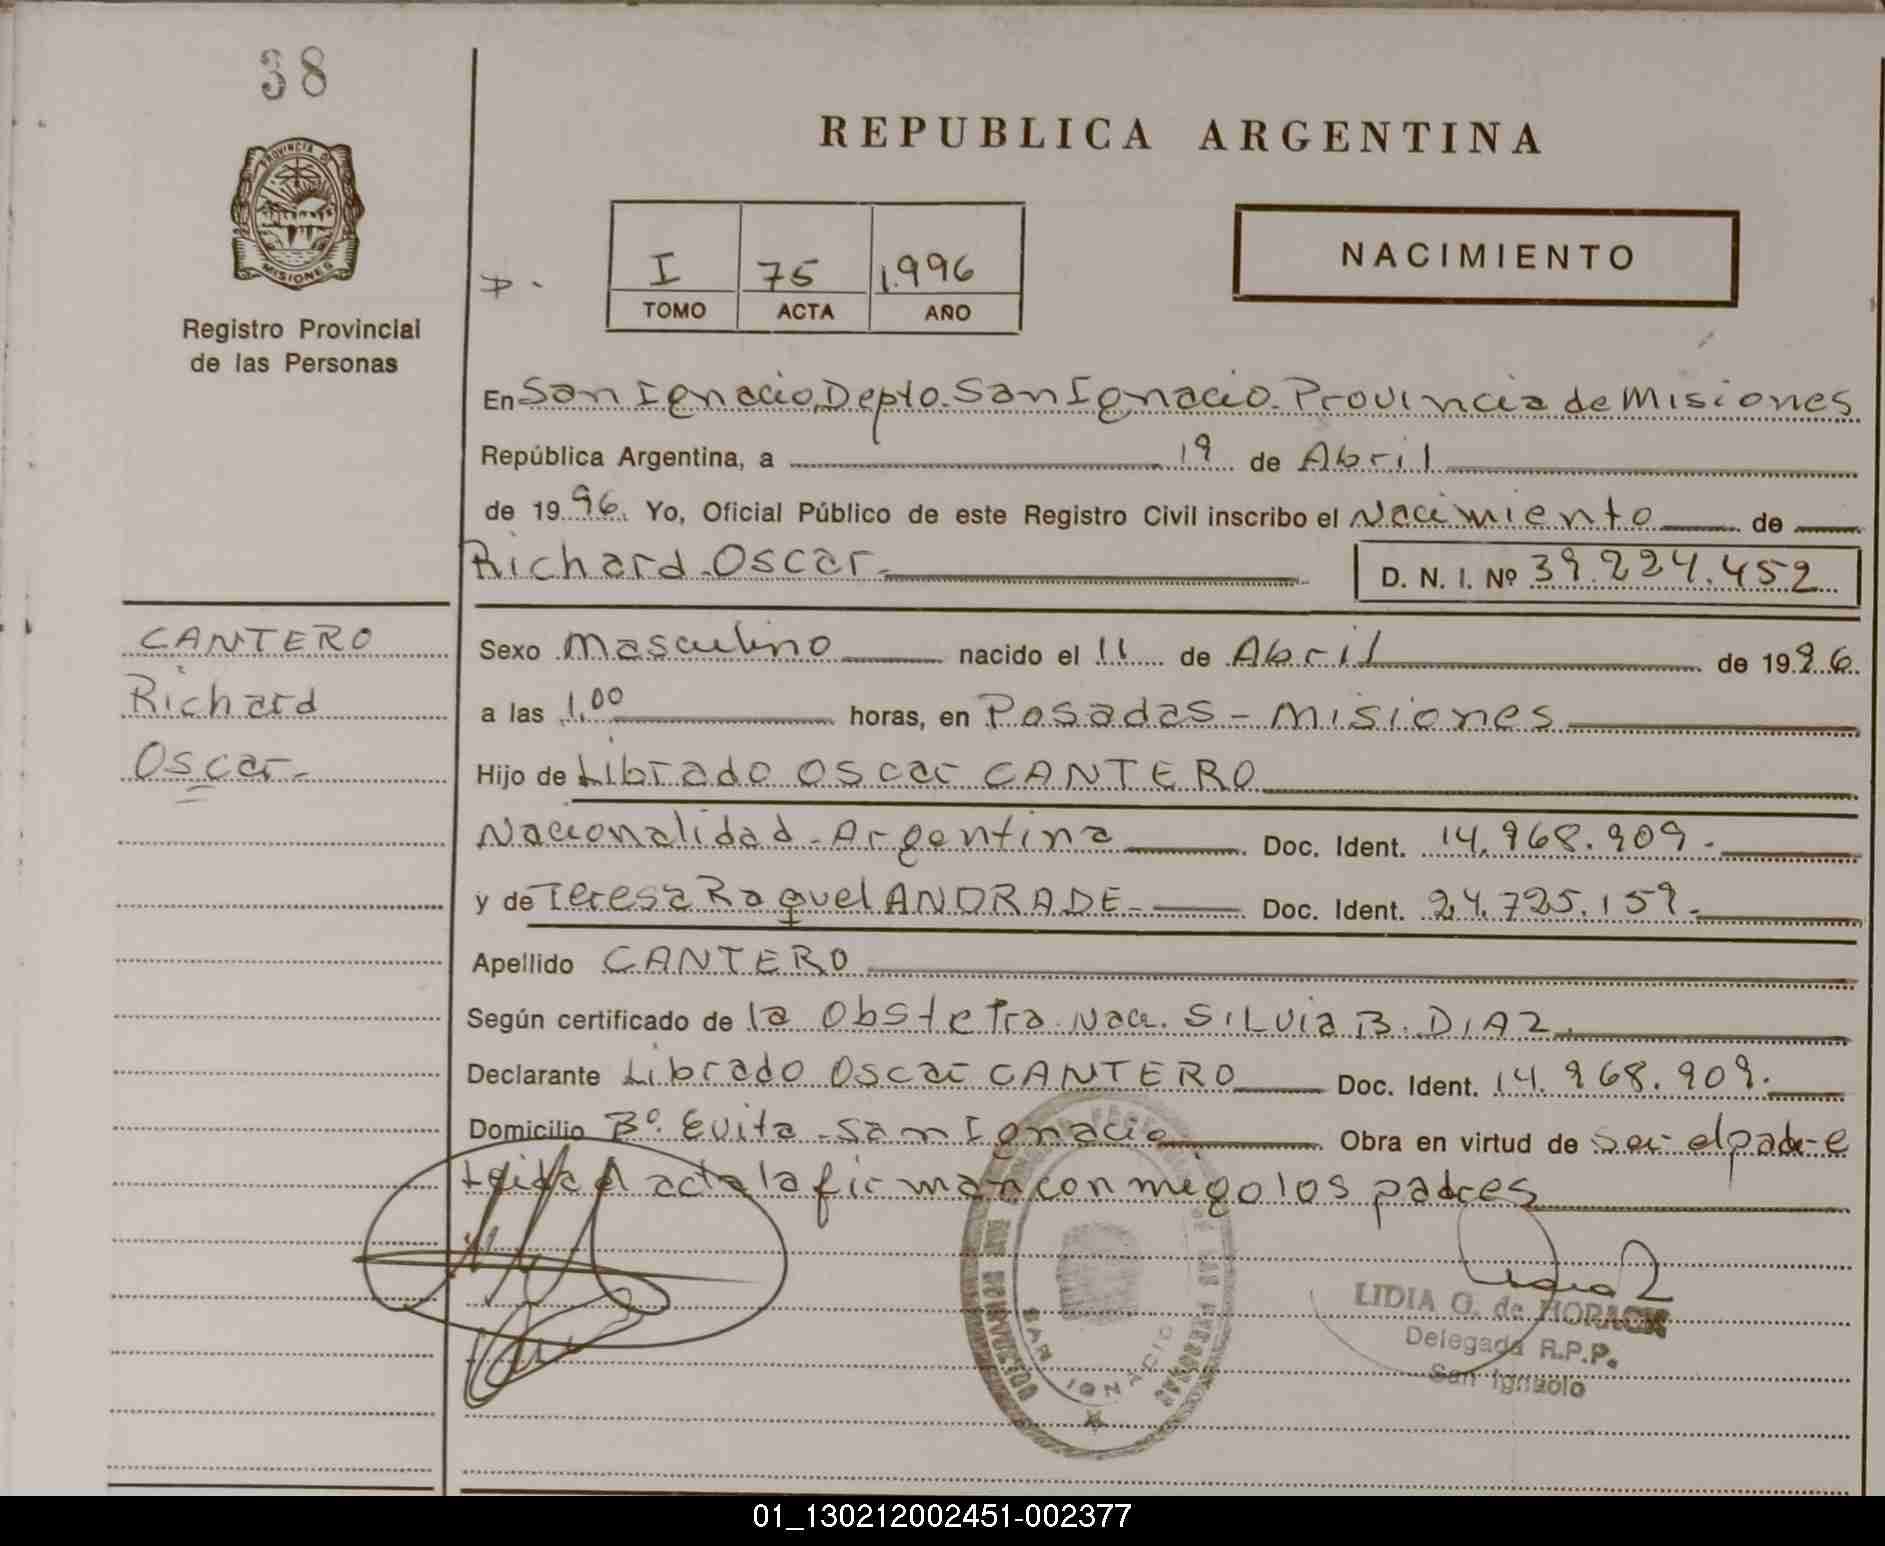 38
PROVINCIA DE
MISIONES
Registro Provincial
de las Personas
REPUBLICA ARGENTINA
I 75 1.996
TOMO ACTA AÑO
NACIMIENTO
En San Ignacio, Depto. San Ignacio. Provincia de Misiones
República Argentina, a 19 de Abril
de 1996. Yo, Oficial Público de este Registro Civil inscribo el Nacimiento de
Richard Oscar.
D. N. I. Nº 39.224.452
CANTERO
Richard
Oscar.-
Sexo Masculino nacido el 11 de Abril de 1996.
a las 1,00 horas, en Posadas - Misiones
Hijo de Librado Oscar CANTERO
Nacionalidad - Argentina Doc. Ident. 14.968.909.-
y de Teresa Raquel ANDRADE.- Doc. Ident. 24.725.159.-
Apellido CANTERO
Según certificado de la Obstetra Nac. SILVia B. DIAZ.
Declarante Librado Oscar CANTERO Doc. Ident. 14.968.909.
Domicilio Bº. Evita - San Ignacio Obra en virtud de ser el padre
Leida el acta la firman conmigo los padres
SAN IGNACIO
LIDIA G. de HORACK
Delegada R.P.P.
San Ignacio
01_130212002451-002377